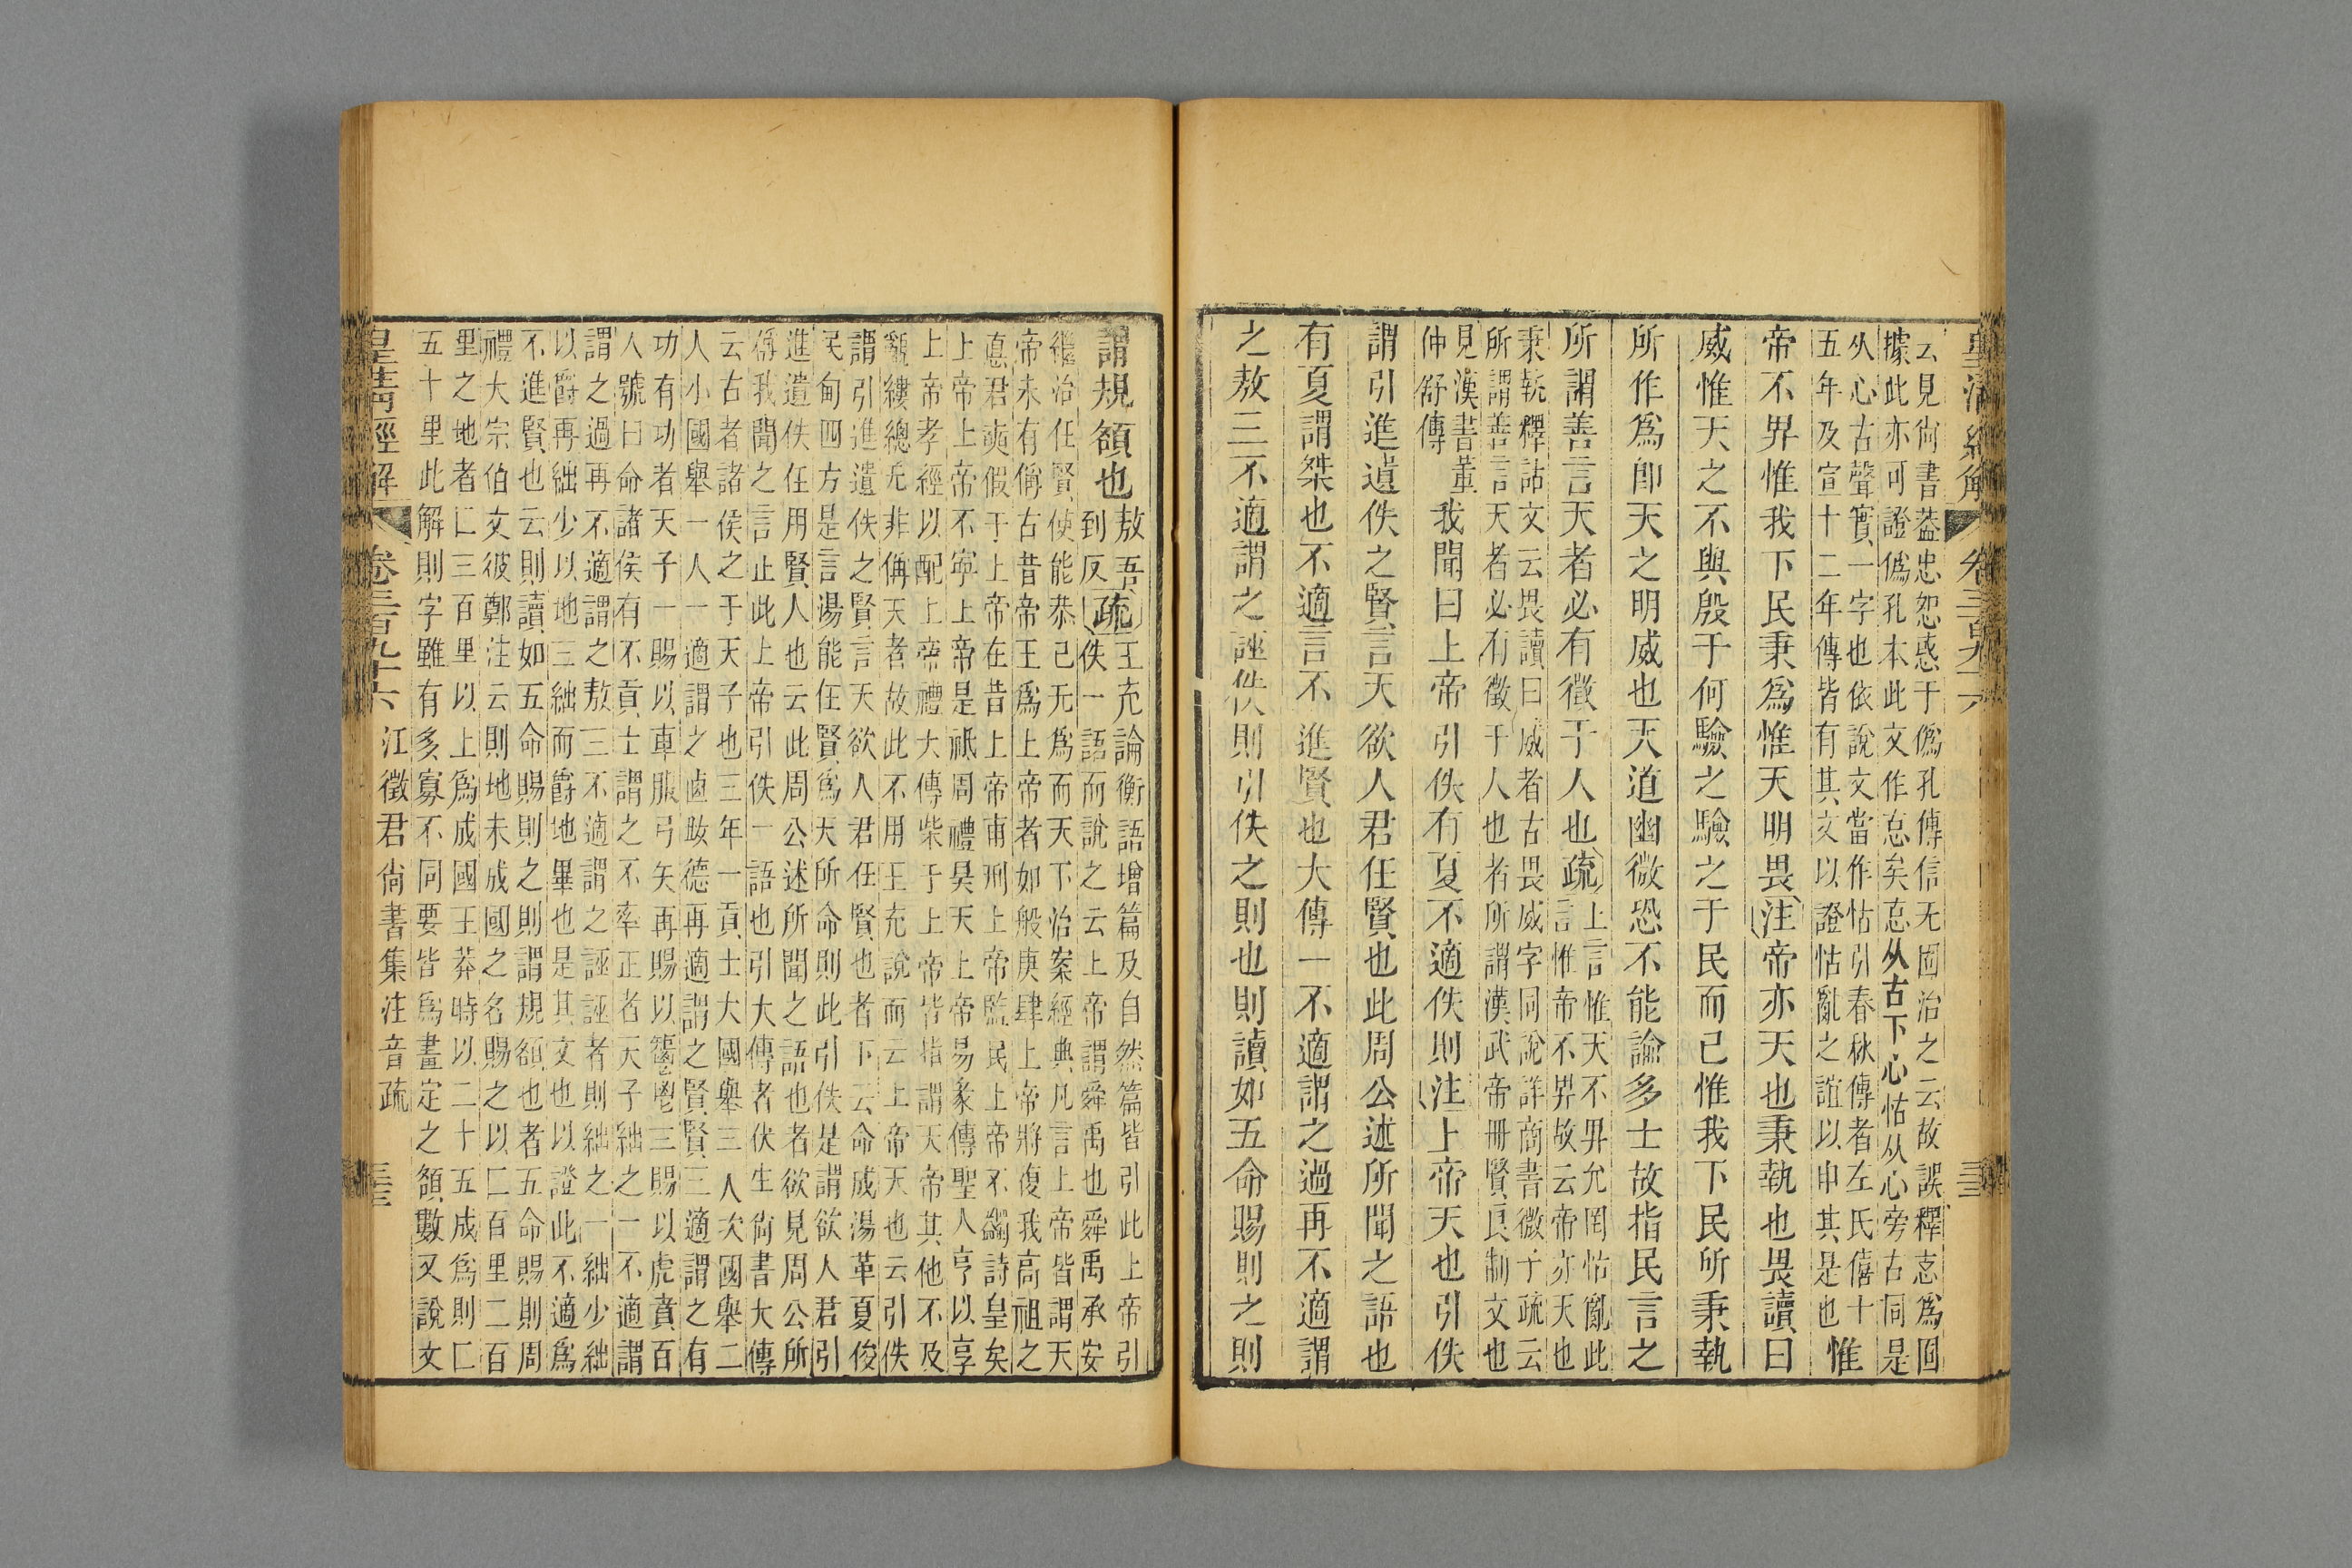 皇清經解 卷三百九十六
云見尙書葢忠恕惑于僞孔傳信无固治之云故誤釋𢗺爲固
據此亦可證僞孔本此文作𢗺矣𢗺从古下心怙从心旁古同是
从心古聲實一字也依說文當作怙引春秋傳者左氏僖十
五年及宣十二年傳皆有其文以證怙亂之誼以申其是也
惟
帝不畀惟我下民秉爲惟天明畏注帝亦天也秉執也畏讀曰
威惟天之不與殷于何驗之驗之于民而已惟我下民所秉執
所作爲卽天之明威也天道幽微恐不能諭多士故指民言之
所謂善言天者必有徵于人也疏
上言惟天不畀允罔怙亂此
言惟帝不畀故云帝亦天也
秉執釋詁文云畏讀曰威者古畏威字同說詳商書微子疏云
所謂善言天者必有徵于人也者所謂漢武帝冊賢良制文也
見漢書董
仲舒傳
我聞曰上帝引佚有夏不適佚則注上帝天也引佚
謂引進遺佚之賢言天欲人君任賢也此周公述所聞之語也
有夏謂桀也不適言不進賢也大傳一不適謂之過再不適謂
之敖三不適謂之誣佚則引佚之則也則讀如五命賜則之則
謂規額也
敖吾
到反
疏
王充論衡語增篇及自然篇皆引此上帝引
佚一語而說之云上帝謂舜禹也舜禹承安
繼治任賢使能恭己无爲而天下治案經典凡言上帝皆謂天
帝未有偁古昔帝王爲上帝者如般庚肆上帝將復我高祖之
悳君奭假于上帝在昔上帝甫刑上帝監民上帝不蠲詩皇矣
上帝上帝不寧上帝是祇周禮昊天上帝易彖傳聖人亨以享
上帝孝經以配上帝禮大傳柴于上帝皆指謂天帝其他不及
覶縷總无非偁天者故此不用王充說而云上帝天也云引佚
謂引進遺佚之賢言天欲人君任賢也者下云命成湯革夏俊
民甸四方是言湯能任賢爲天所命則此引佚是謂欲人君引
進遺佚任用賢人也云此周公述所聞之語也者欲見周公所
偁我聞之言止此上帝引佚一語也引大傳者伏生尙書大傳
云古者諸侯之于天子也三年一貢士大國舉三人次國舉二
人小國舉一人一適謂之逌眅德再適謂之賢賢三適謂之有
功有功者天子一賜以車服弓矢再賜以鬯三賜以虎賁百
人號曰命諸侯有不貢士謂之不率正者天子絀之一不適謂
謂之過再不適謂之敖三不適謂之誣誣者則絀之一絀少絀
以爵再絀少以地三絀而爵地畢也是其文也以證此不適爲
不進賢也云則讀如五命賜則之則謂規額也者五命賜則周
禮大宗伯文彼鄭注云則地未成國之名賜之以二百里二百
里之地者匚三百里以上爲成國王莽時以二十五成爲則匚
五十里此解則字雖有多寡不同要皆爲畫定之額數又說文
皇淸經解 卷三百九十六 江徵君尙書集注音疏